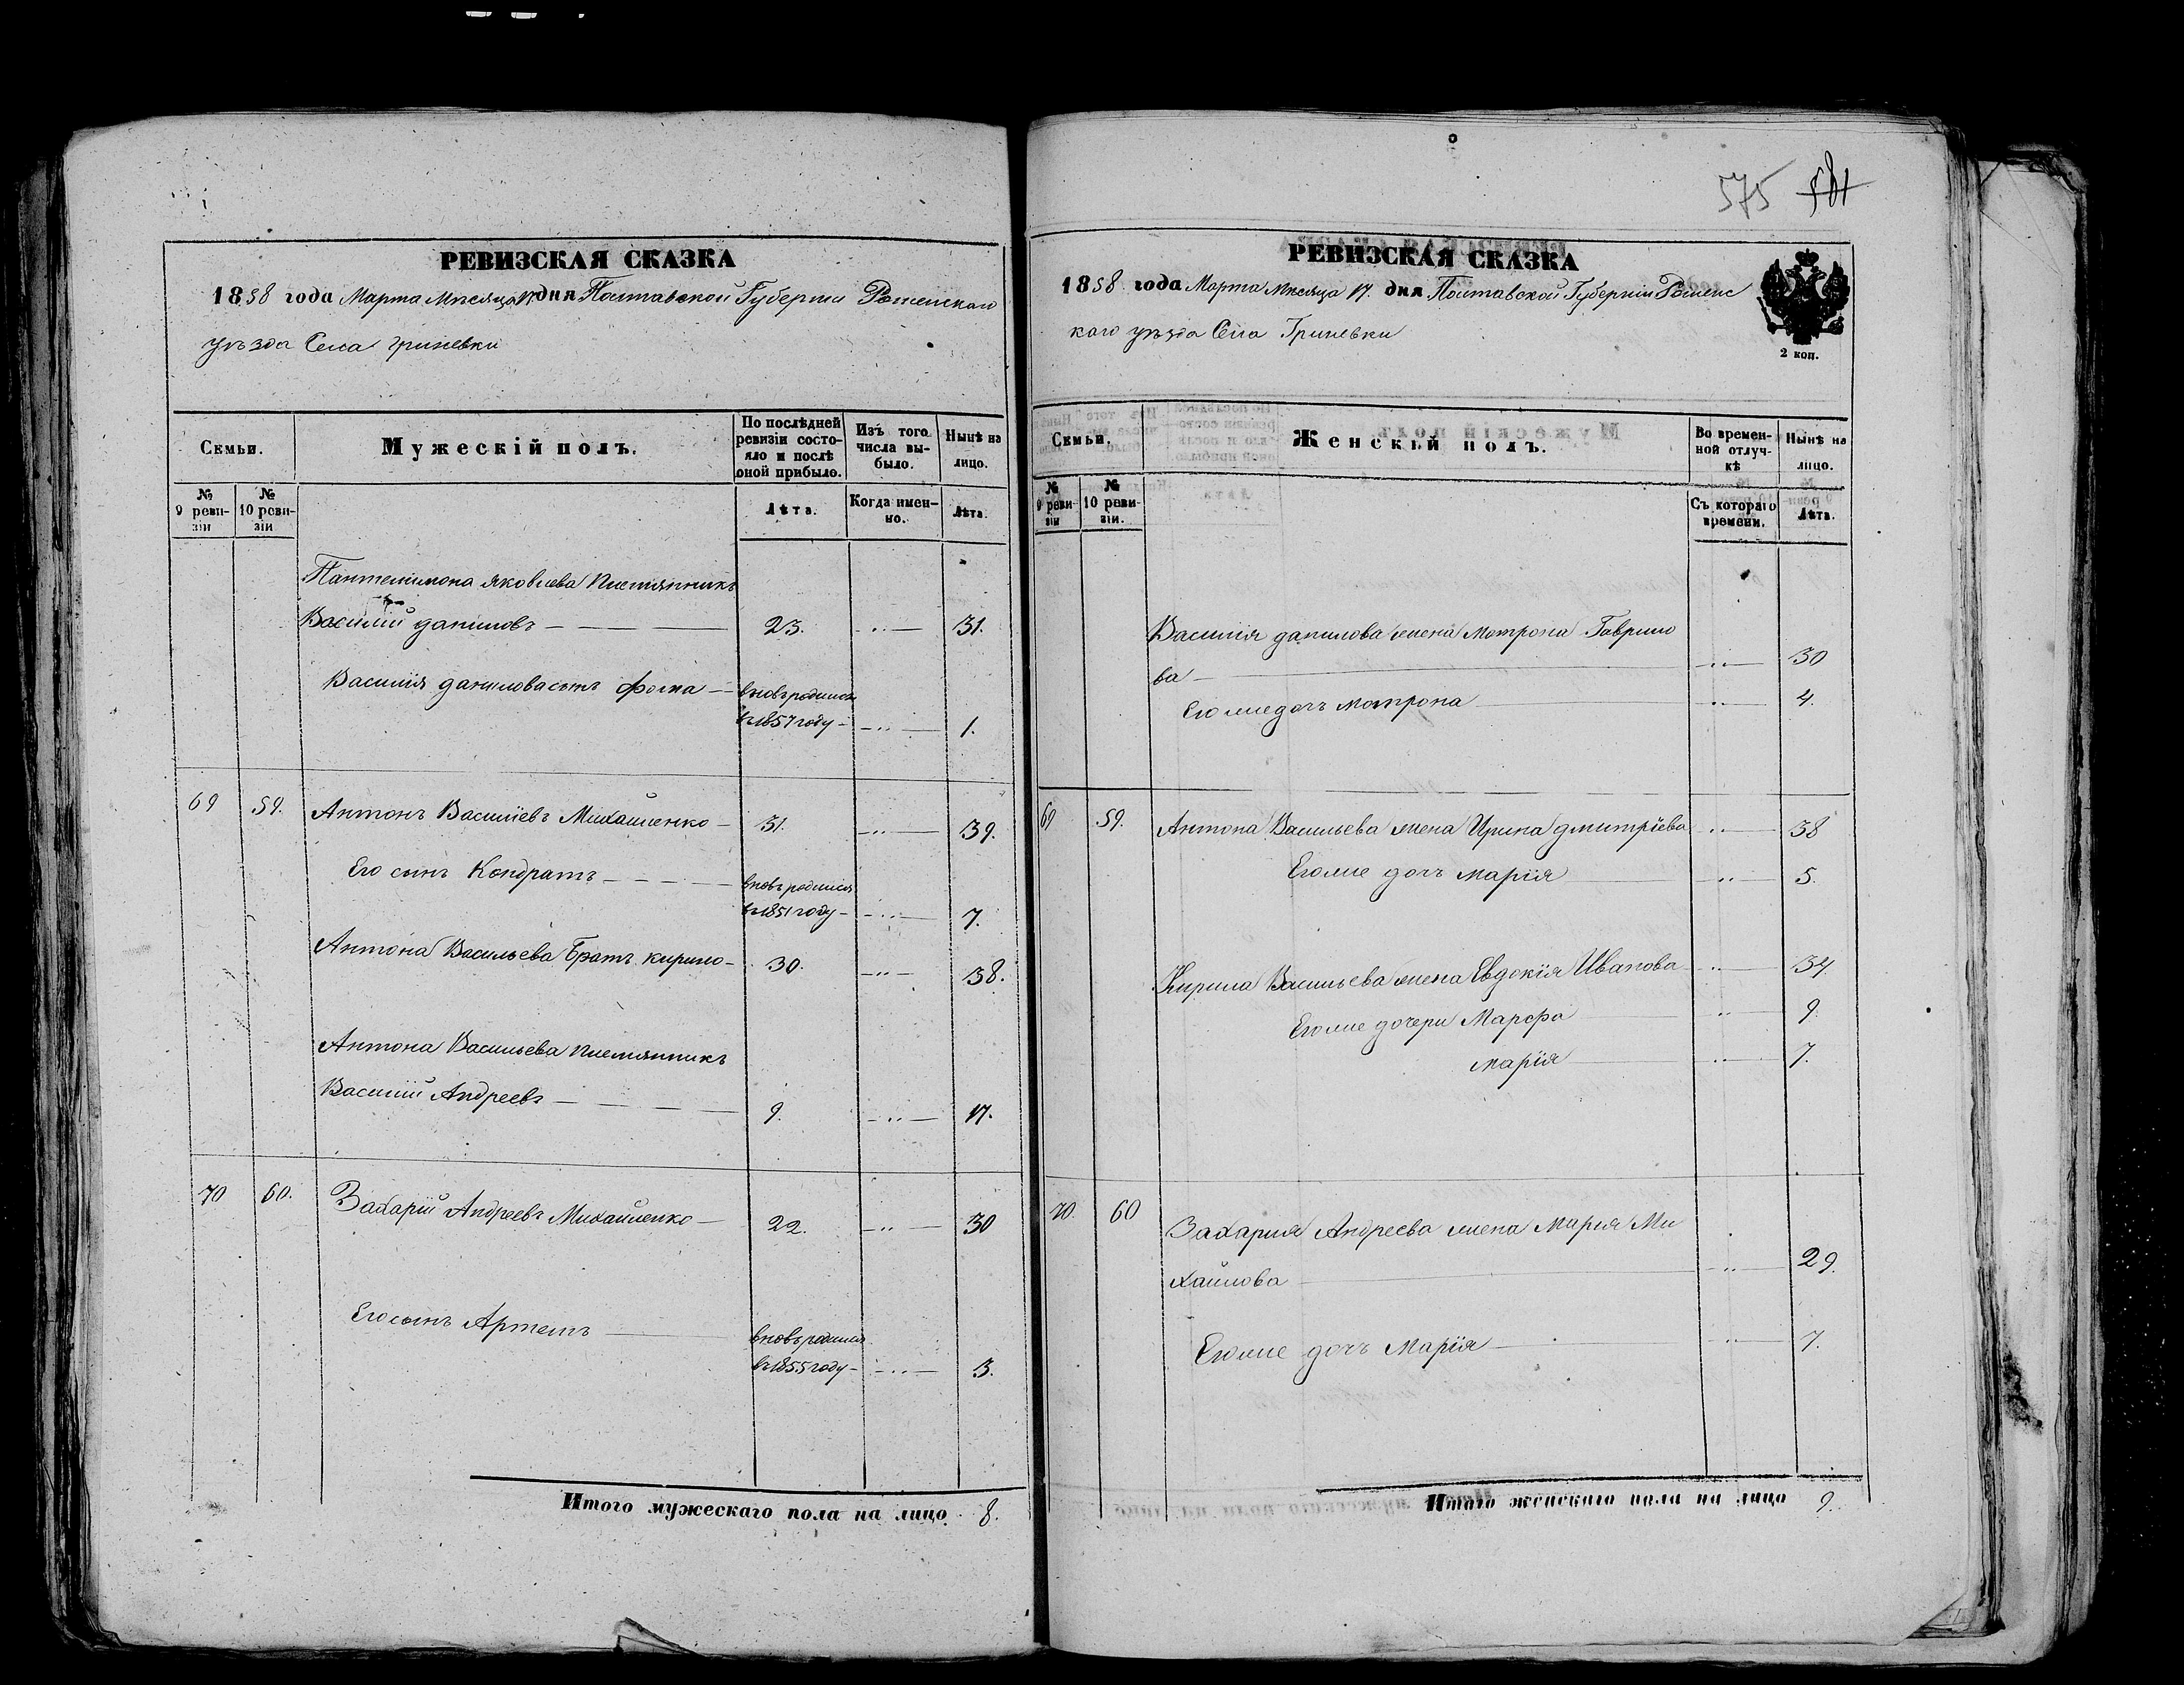 РЕВИЗСКАЯ СКАЗКА
1858 года Марта Мѣсяца 17 дня Полтавской Губерніи Роменскаго
уѣзда Села Гриневки
Семьи.
Мужескій полъ.
По послѣдней ревизіи состояло и послѣ оной прибыло.
Изъ того числа выбыло.
Нынѣ на лицо.
№ 9 ревизіи
№ 10 ревизіи
Лѣта.
Когда именно.
Лѣта.
Пантелимона Яковлева племянникъ
Василій Даниловъ 23. 31.
Василія Данилова сынъ Фома вновь родился
въ 1857 году 1.
69 59. Антонъ Василіевъ Михайленко 31. 39.
Его сынъ Кондратъ вновь родился
въ 1851 году 7.
Антона Васильева Братъ Кирило 30. 38.
Антона Васильева племянникъ
Василій Андреевъ 9. 17.
70 60. Захарій Андреевъ Михайленко 22. 30
Его сынъ Артемъ вновь родился
въ 1855 году 3.
Итого мужескаго пола на лицо 8.
575 581
РЕВИЗСКАЯ СКАЗКА
1858 года Марта Мѣсяца 17. дня Полтавской Губерніи Роменс
каго уѣзда Села Гриневки
2 коп.
Семьи.
Женскій полъ.
Во временной отлучкѣ
Нынѣ на лицо.
№ 9 ревизіи
№ 10 ревизіи.
Съ котораго времени.
Лѣта.
Василія Данилова жена Мотрона Гаврило
ва 30
Его же дочь Мотрона 4.
69 59. Антона Васильева жена Ирина Дмитріева 38
Его же дочь Марія 5.
Кирила Васильева жена Евдокія Иванова 34
Его же дочери Марфа 9.
Марія 7.
70. 60 Захарія Андреева жена Марія Ми
хайлова 29.
Его же дочь Марія 7.
Итого женскаго пола на лицо 9.